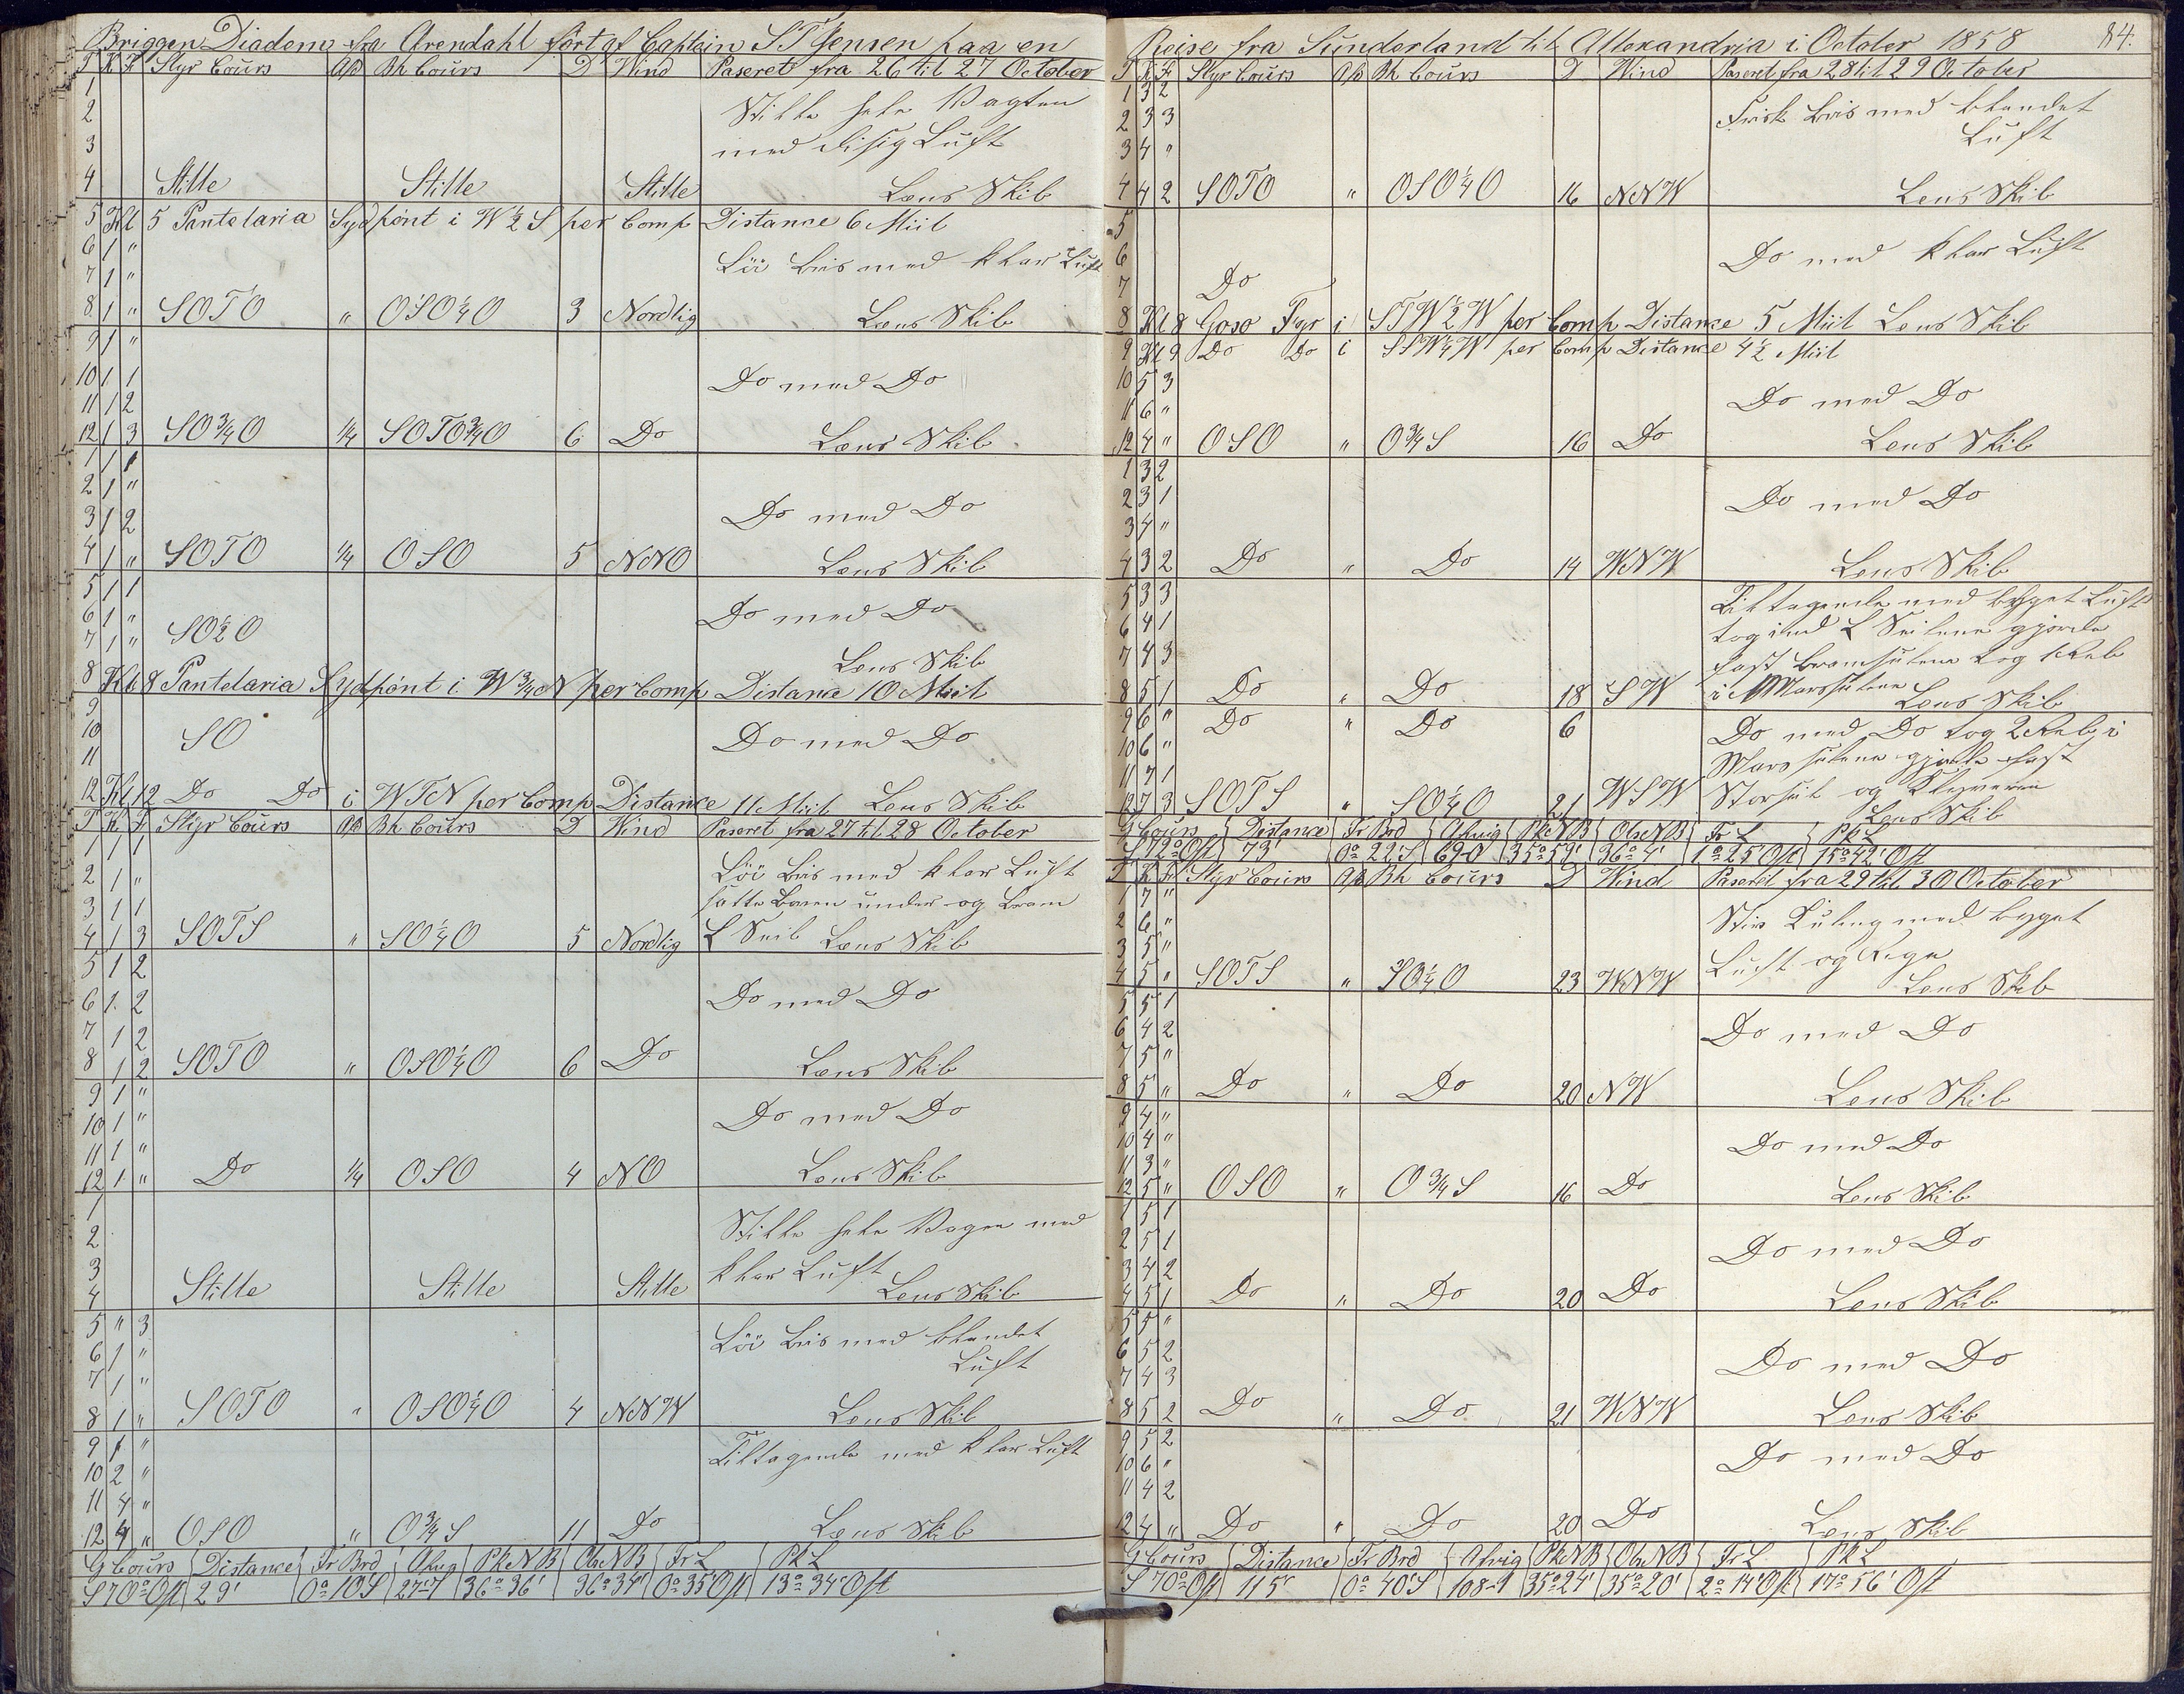 Briggen Diadem fra Arendahl fört af Captein S T Jensen paa en
T K F Styr Cours Afd Bh Cours D Wind Paseret fra 26 til 27 October
1 Stille hele Vagten
2 med disig Luft
3
4 Stille Stille Stille Lens Skib
5 Kl 5 Pantelaria Sydpönt i W½S per Comp Distance 6 Miil
6 1 "
7 1 " Löi Bris med klar Luft
8 1 " SOTO " OSO¼O 3 Nordlig Lens Skib
9 1 "
10 1 1 Do med Do
11 1 2
12 1 3 SO¾O ¼ SOTO¾O 6 Do Lens Skib
1 1 1
2 1 "
3 1 2 Do med Do
4 1 " SOTO ¼ OSO 5 NNO Lens Skib
5 1 1
6 1 " Do med Do
7 1 " SO½O Lens Skib
8 Kl 8 Pantelaria Sydpönt i W¾N per Comp Distance 10 Miil
9
10 SO Do med Do
11
12 Kl 12 Do Do i WTN per Comp Distance 11 Miil Lens Skib
T K F Styr Cours Afd Bh Cours D Wind Paseret fra 27 til 28 October
1 1 1
2 1 " Löi Bris med klar Luft
3 1 1 satte Boven under og Bram
4 1 3 SOTS " SO¼O 5 Nordlig L Seil Lens Skib
5 1 2
6 1 2 Do med Do
7 1 2
8 1 2 SOTO " OSO¼O 6 Do Lens Skib
9 1 "
10 1 " Do med Do
11 1 "
12 1 " Do ¼ OSO 4 NO Lens Skib
1
2 Stille hele Vagen med
3 klar Luft
4 Stille Stille Stille Lens Skib
5 " 3
6 1 " Löi Bris med blandet
7 1 " Luft
8 1 " SOTO " OSO¼O 4 NNW Lens Skib
9 1 " Tiltagende med klar Luft
10 2 "
11 4 "
12 4 " OSO " O¾S 11 Do Lens Skib
G Cours Distance Fr Brd Afvig Pk N B Obs N B Fr L Pk L
S 70° Ost 29' 0° 10' S 27-1 36° 36' 36° 34' 0° 35' Ost 13° 34' Ost
Reise fra Sunderland til Allexandria i October 1858 84.
T K F Styr Cours Afd Bh Cours D Wind Paseret fra 28 til 29 October
1 3 2
2 3 3 Frisk Bris med blandet
3 4 " Luft
4 4 2 SOTO " OSO¼O 16 NNW Lens Skib
5
6 Do med klar Luft
7 Do
8 Kl 8 Goso Fyr i STW½W per Comp Distance 5 Miil Lens Skib
9 Kl 9 Do Do i SSW¼W per Comp Distance 4½ Miil
10 5 3
11 6 " Do med Do
12 4 " OSO " O¾S 16 Do Lens Skib
1 3 2
2 3 1 Do med Do
3 4 "
4 3 2 Do " Do 14 WNW Lens Skib
5 3 3 Tiltagende med byget Luft
6 4 1 tog ind L Seilene gjorde
7 4 3 fast Bramseilene tog 1 Reb
8 5 1 Do " Do 18 SW i Marsseilene Lens Skib
9 6 " Do " Do 6 Do med Do tog 2 Reb i
10 6 " Mars seilene gjorde fast
11 7 1 Storseil og Klyveren
12 7 3 SOTS " SO¼O 21 WSW Lens Skib
G Cours Distance Fr Brd Afvig Pk N B Obs N B Fr L Pk L
S 72° Ost 73' 0° 22' S 69-0 35° 59' 36° 4' 1° 25' Ost 15° 42' Ost
T K F Styr Cours Afd Bh Cours D Wind Paseret fra 29 til 30 October
1 7 "
2 6 " Stiv Kuling med byget
3 5 " Luft og Regn
4 5 " SOTS " SO¼O 23 WNW Lens Skib
5 5 1
6 4 2 Do med Do
7 5 "
8 5 " Do " Do 20 NW Lens Skib
9 4 "
10 4 " Do med Do
11 3 "
12 5 " OSO " O¾S 16 Do Lens Skib
1 5 1
2 5 1 Do med Do
3 4 2
4 5 1 Do " Do 20 Do Lens Skib
5 5 "
6 5 2 Do med Do
7 4 3
8 5 2 Do " Do 21 WNW Lens Skib
9 5 2
10 6 " Do med Do
11 4 2
12 4 " Do " Do 20 Do Lens Skib
G Cours Distance Fr Brd Afvig Pk N B Obs N B Fr L Pk L
S 70° Ost 115' 0° 40' S 108-1 35° 24' 35° 20' 2° 14' Ost 17° 56' Ost